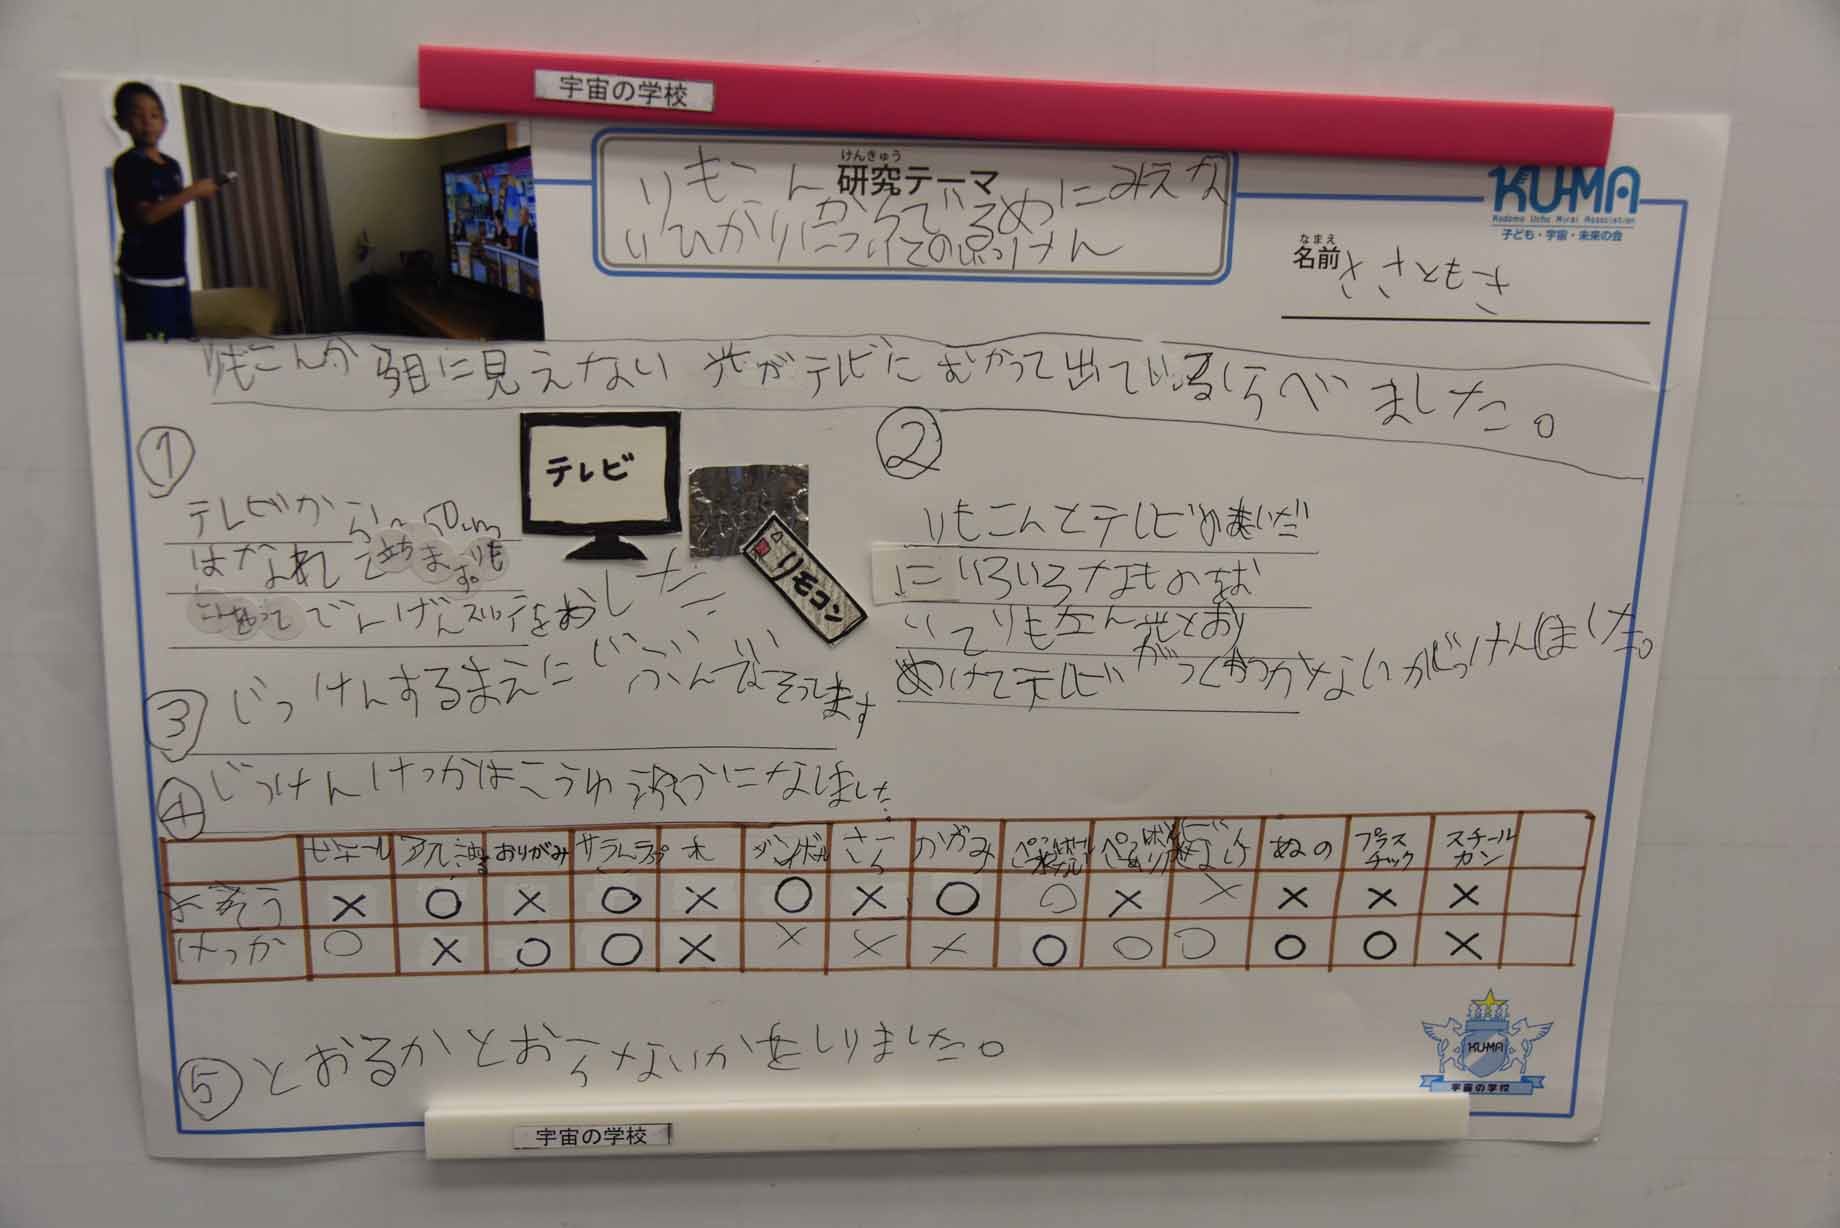 宇宙の学校
けんきゅう
研究テーマ
りもこんからでているめにみえな
いひかりについてのじっけん
KU-MA
Kodomo Uchu Mirai Association
子ども・宇宙・未来の会
なまえ
名前
ささともき
りもこんから目に見えない光がテレビにむかって出ている
べました。
①
テレビから
50cm
はなれて立ちます。りも
こんもって
でんげん
をおした
テレビ
リモコン
②
りもこんとテレビのあいだ
にいろいろなものをお
いてりもこん光とおり
ぬけてテレビがつくかつかないかじっけんしました。
③
じっけんするまえに
④
じっけんけっかはこうゆう
になりました。
ビニール
アルミ
おりがみ
サランラップ
木
ダンボール
さら
かがみ
ペットボトル
ペットボトル
ぬの
プラスチック
スチールカン
よそう
× ○ × ○ × ○ × ○ ○ × × × × ×
けっか
○ × ○ ○ × × × × ○ ○ ○ ○ ○ ×
⑤
とおるかとおらないかをしりました。
KUMA
宇宙の学校
宇宙の学校